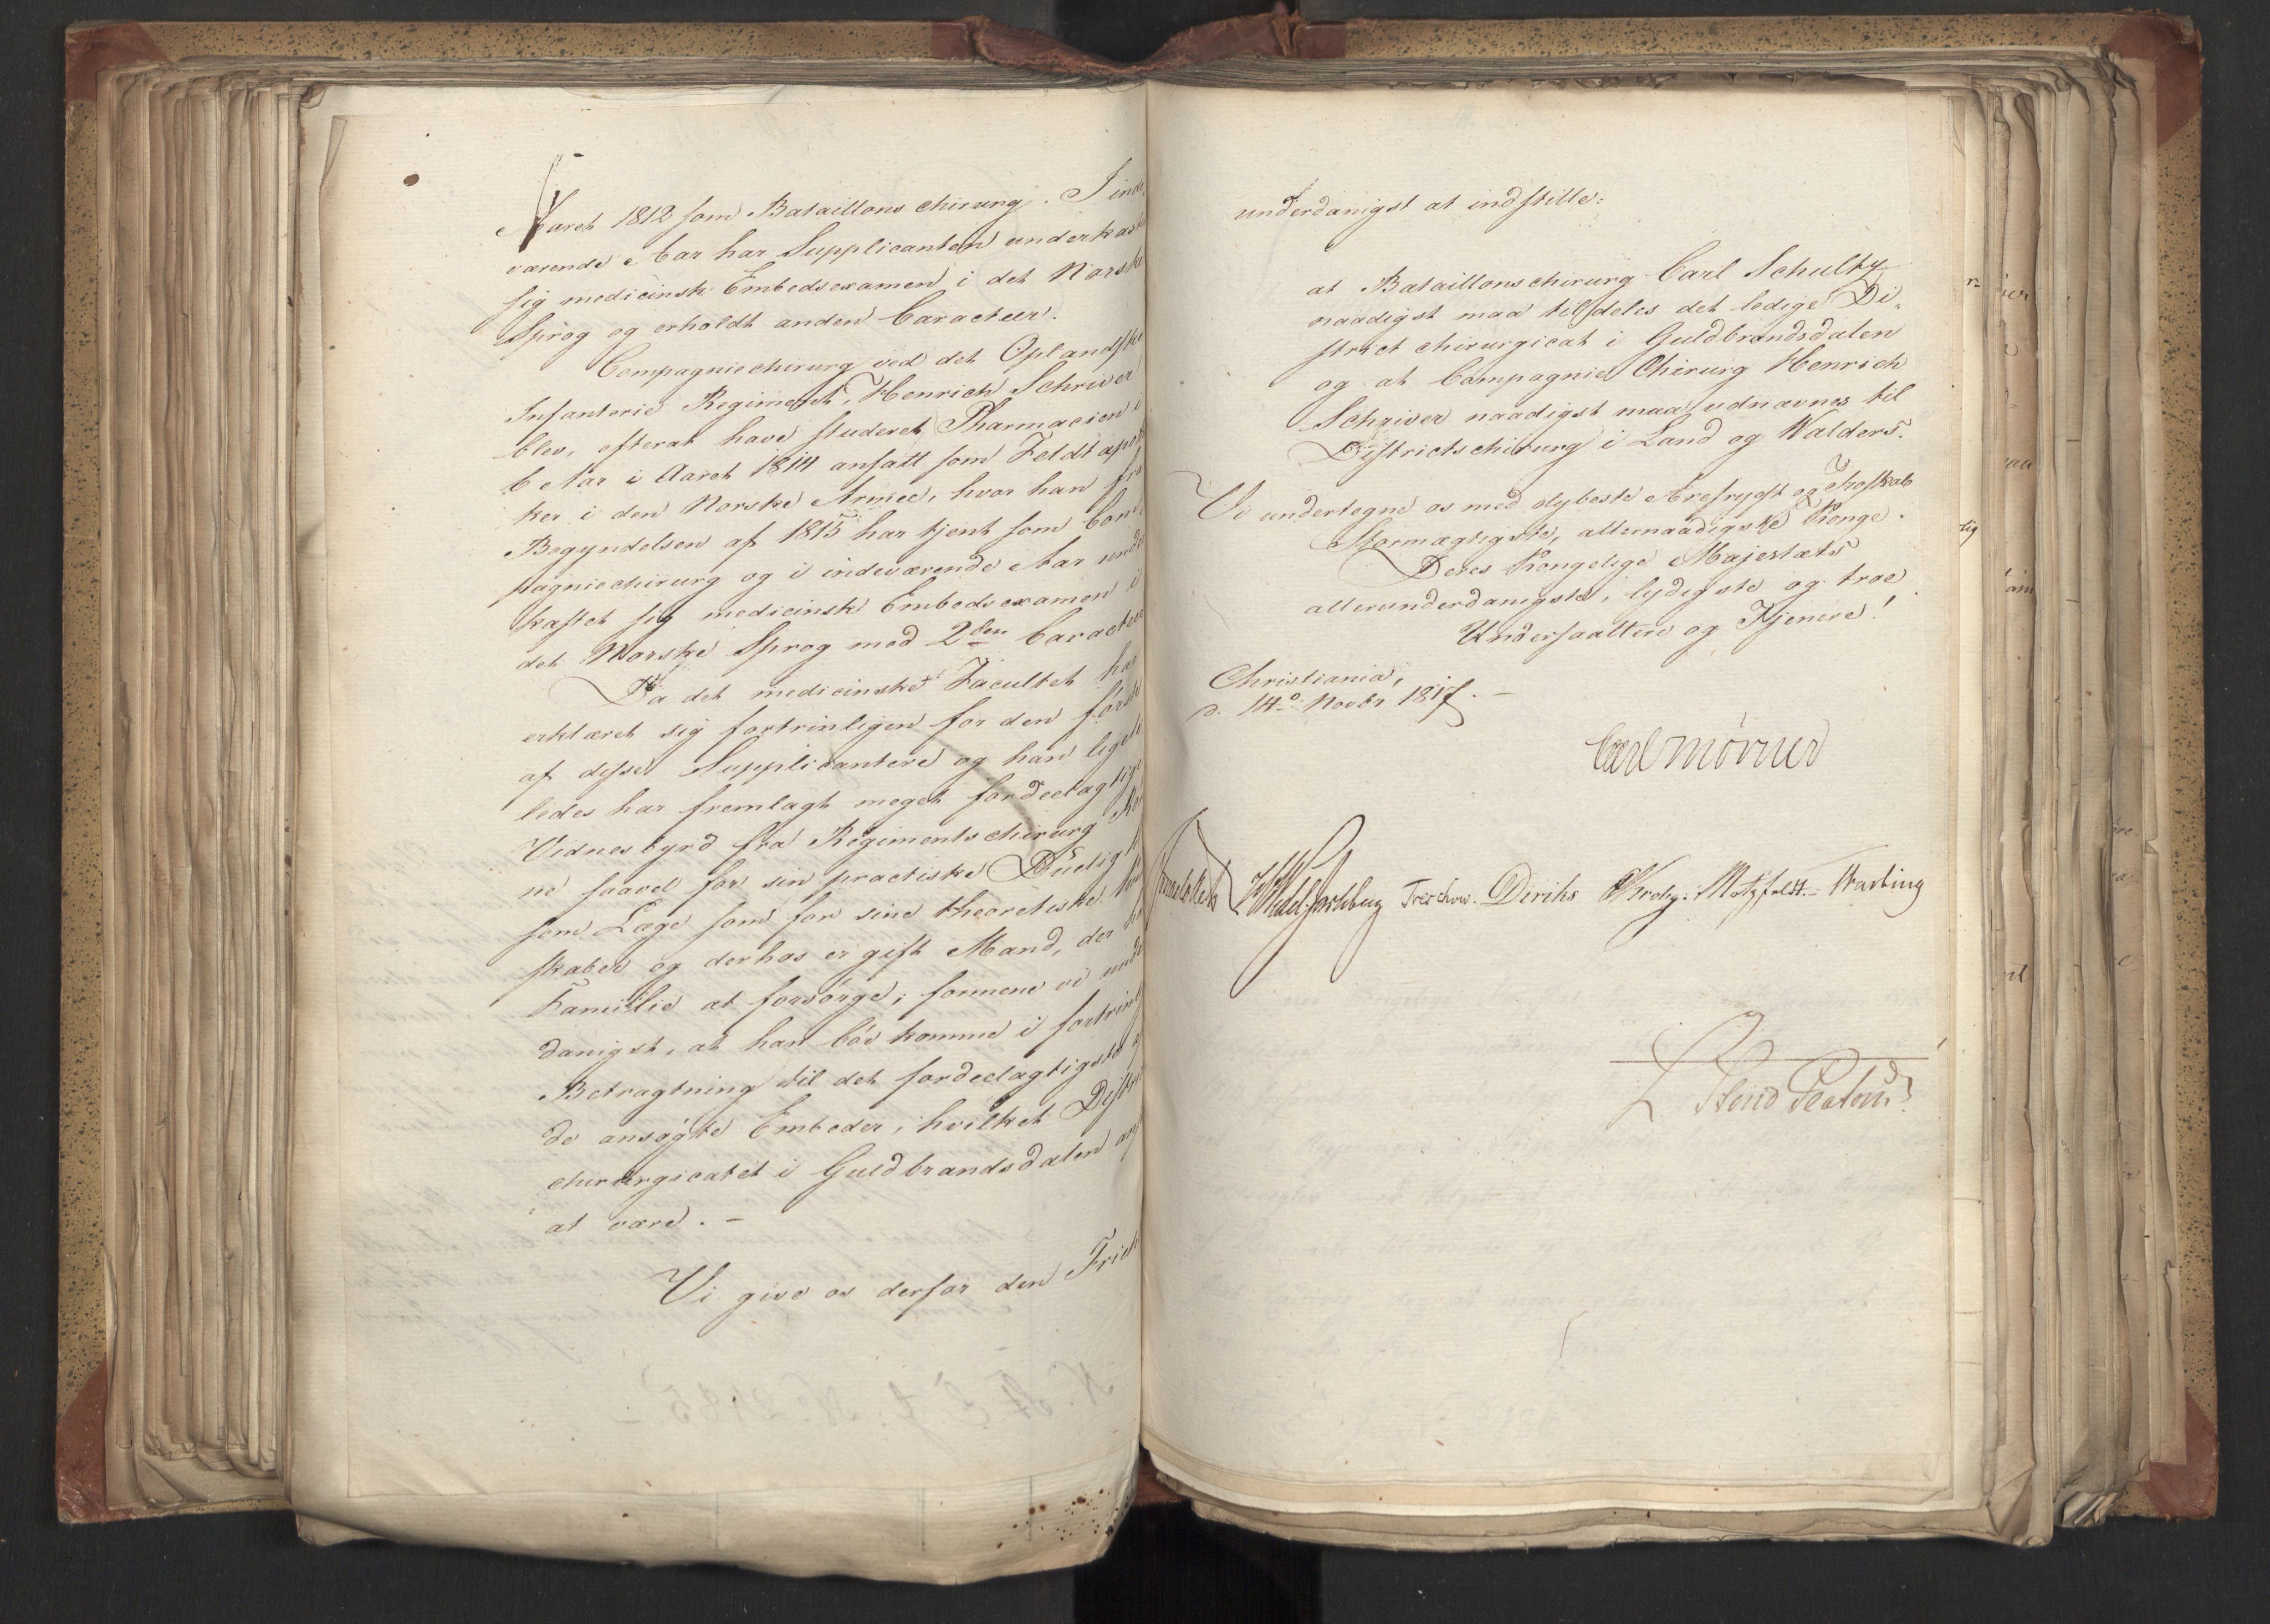 Aaret 1812 som Bataillonschirurg. I inde
værende Aar har Supplicanten underkast
sig medicinsk Embedsexamen i det Norske
Sprog og erholdt anden Caracteer.
Compagniechirurg ved det Oplandske
Infanterie Regiment, Henrich Schriver
blev, efterat have studeret Pharmacien i
6 Aar i Aaret 1814 ansatt som Feldtapot
ker i den Norske Armee, hvor han fra
Begyndelsen af 1815 har tjent som Com
pagniechirurg og i indeværende Aar unde
kastet sig medicinsk Embedsexamen i
det Norske Sprog med 2den Caracteer
Da det medicinske Facultet har
erklæret sig fortrinligen for den første
af disse Supplicantere og han ligele
ledes har fremlagt meget fordeelagtige
Vidnesbyrd fra Regimentschirurg
ne saavel for sin practiske Duelig
som Læge som for sine theoretiske
skaber og derhos er gift Mand, der
Familie at forsørge; formene vi unde
danigst, at han bør komme i fortrinl
Betragtning til det fordeelagtigste
de ansøgte Embeder, hvilket Distr
chirurgicatet i Guldbrandsdalen
at være. -
Vi give os derfor den Frieh
underdanigst at indstille:
at Bataillonschirurg Carl Schultz
naadigst maa tildeles det ledige Di-
strict chirurgicat i Guldbrandsdalen
og at Compagnie Chirurg Henrich
Schriver naadigst maa udnævnes til
Districtschirurg i Land og Walders.
Vi undertegne os med dybeste Ærefrygt og Troskab
Stormægtigste, allernaadigste Konge.
Deres Kongelige Majestæts
allerunderdanigste, lydigste og troe
Undersaattere og Tjenere!
Christiania,
d. 14de Novbr 1817. -
Carl Mörner
Wedel Jarlsberg Treschow. Diriks Krohg. Motzfeldt. -